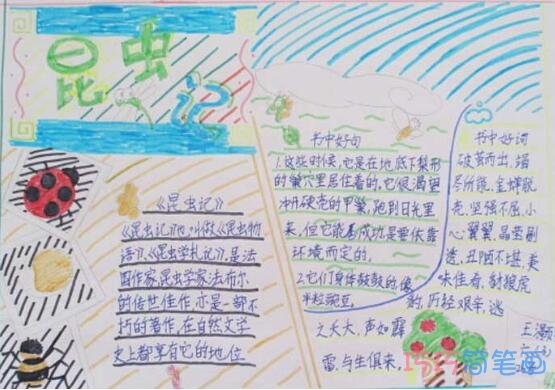 昆虫记
《昆虫记》
《昆虫记》也叫做《昆虫物
语》、《昆虫学札记》,是法
国作家,昆虫学家法布尔
的传世佳作,亦是一部不
朽的著作,在自然文学
史上都享有它的地位
书中好句
1.这些时候,它是在地底下梨形
的巢穴里居住着的,它很渴望
冲开硬壳的甲巢,跑到日光里
来,但它能否成功是要依靠
环境而定的。
2.它们身体鼓鼓的像
半粒豌豆。
书中好词
破茧而出、竭
尽所能、金蝉脱
壳、坚强不屈、小
心翼翼、晶莹剔
透、丑陋不堪、美
味佳肴、豺狼虎
豹、历经艰辛、逃
之夭夭、声如霹
雳、与生俱来、
巧巧简笔画